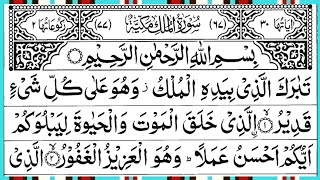 اٰیَاتُهَا ٣٠ (٦٧) سُوْرَةُ الْمُلْكِ مَكِّیَّةٌ (٧٧) رُكُوْعَاتُهَا ٢
بِسْمِ اللهِ الرَّحْمٰنِ الرَّحِیْمِ
تَبٰرَكَ الَّذِیْ بِیَدِهِ الْمُلْكُ ز وَهُوَ عَلٰی كُلِّ شَیْءٍ
قَدِیْرُ ۙ﴿١﴾ اِ۟لَّذِیْ خَلَقَ الْمَوْتَ وَالْحَیٰوةَ لِیَبْلُوَكُمْ
اَیُّكُمْ اَحْسَنُ عَمَلًا ؕ وَهُوَ الْعَزِیْزُ الْغَفُوْرُ ۙ﴿٢﴾ الَّذِیْ